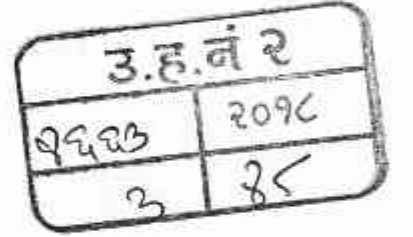 उ.ह.नं २
१६६३ २०१८
३ ३८